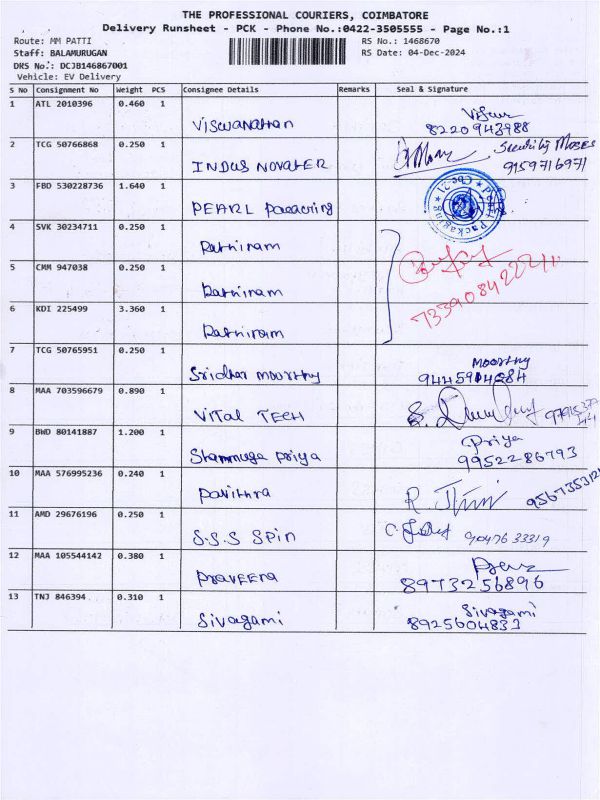 THE PROFESSIONAL COURIERS, COIMBATORE
Delivery Runsheet - PCK - Phone No.:0422-3505555 - Page No.:1
Route: MM PATTI
RS No.: 1468670
Staff: BALAMURUGAN
RS Date: 04-Dec-2024
DRS No.: DCJB146867001
Vehicle: EV Delivery
S No Consignment No Weight PCS Consignee Details Remarks Seal & Signature
1 ATL 2010396 0.460 1 Viswanathan 8220943988
2 TCG 50766868 0.250 1 INDUS NOVATER Security Moses 9159716971
3 FBD 530228736 1.640 1 PEARL Pacacning
4 SVK 30234711 0.250 1 Rathiram
5 CMM 947038 0.250 1 Rathiram
6 KDI 225499 3.360 1 Rathiram
7 TCG 50765951 0.250 1 Sridhar moorthy Moorthy 9445914284
8 MAA 703596679 0.890 1 VITAL TECH
9 BWD 80141887 1.200 1 Shammuga priya Priya 9952286793
10 MAA 576995236 0.240 1 Pavithra 9567353121
11 AMD 29676196 0.250 1 S.S.S SPIN 9047633319
12 MAA 105544142 0.380 1 PRAVEENA 8973256896
13 TNJ 846394 0.310 1 Sivagami Sivagami 8925604833